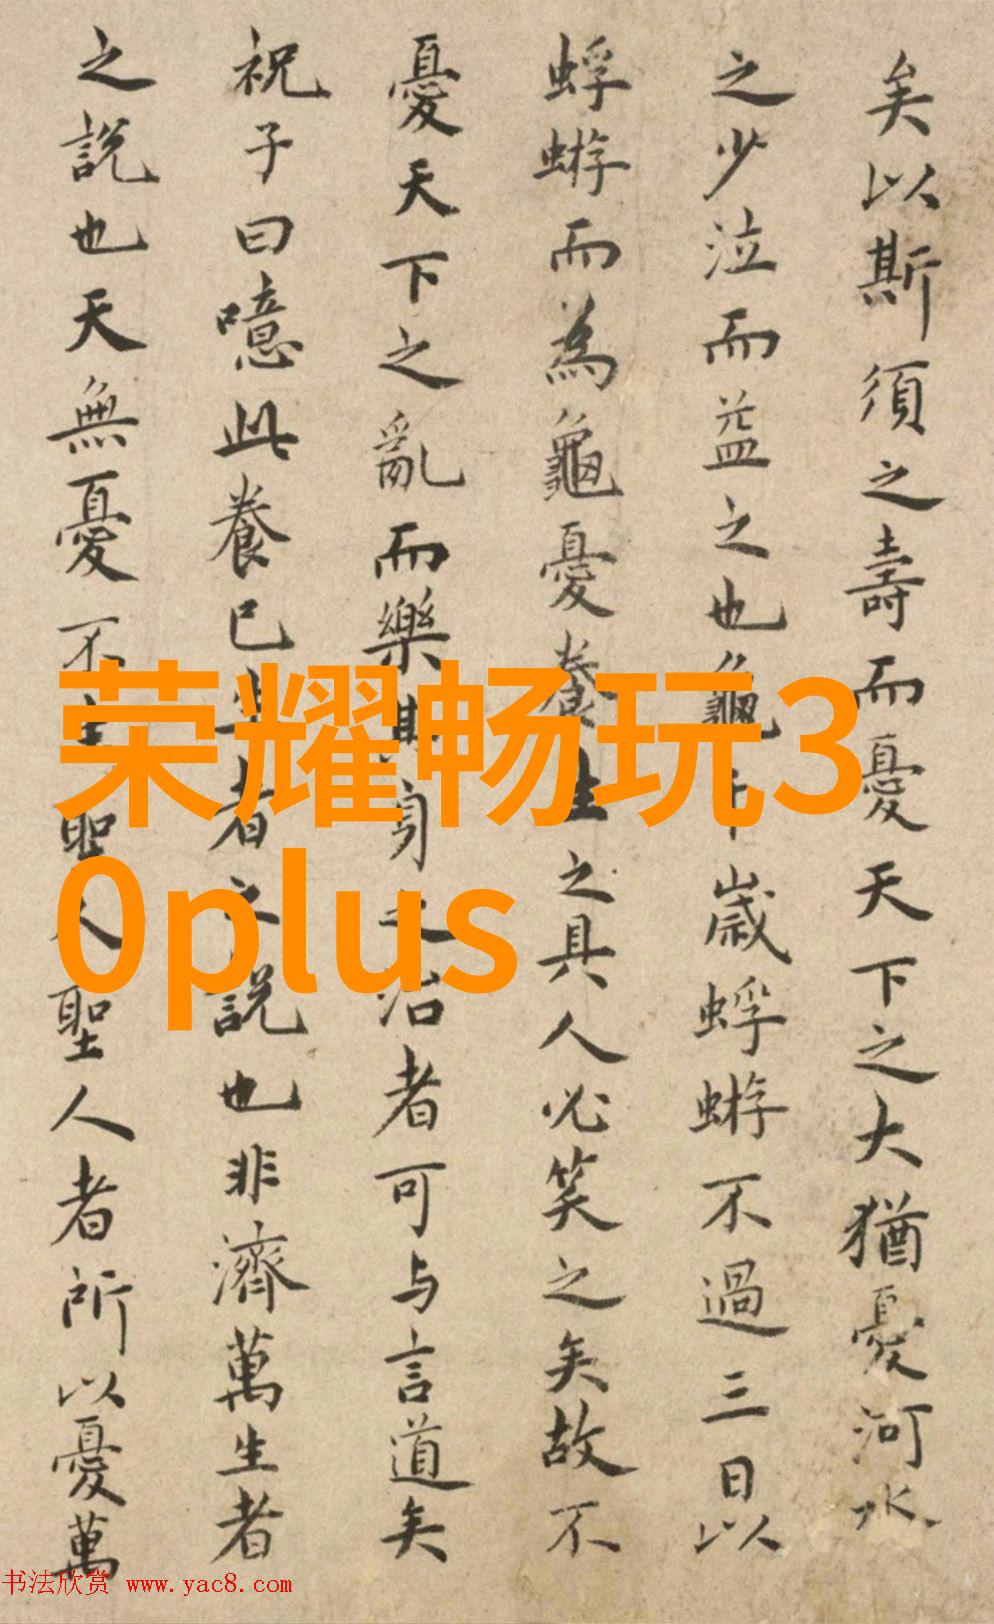 矣以斯須之壽而憂天下之大猶憂河水
之少泣而益之也龜千歲蜉蝣不過三日以
蜉蝣而為龜憂養生之具人必笑之矣故不
憂天下之亂而樂其身之治者可与言道矣
祝子曰噫此養已生者之說也非濟萬生者
之說也天無憂不生聖人聖人者所以憂萬
荣耀畅玩3
0plus
书法欣赏 www.yac8.com